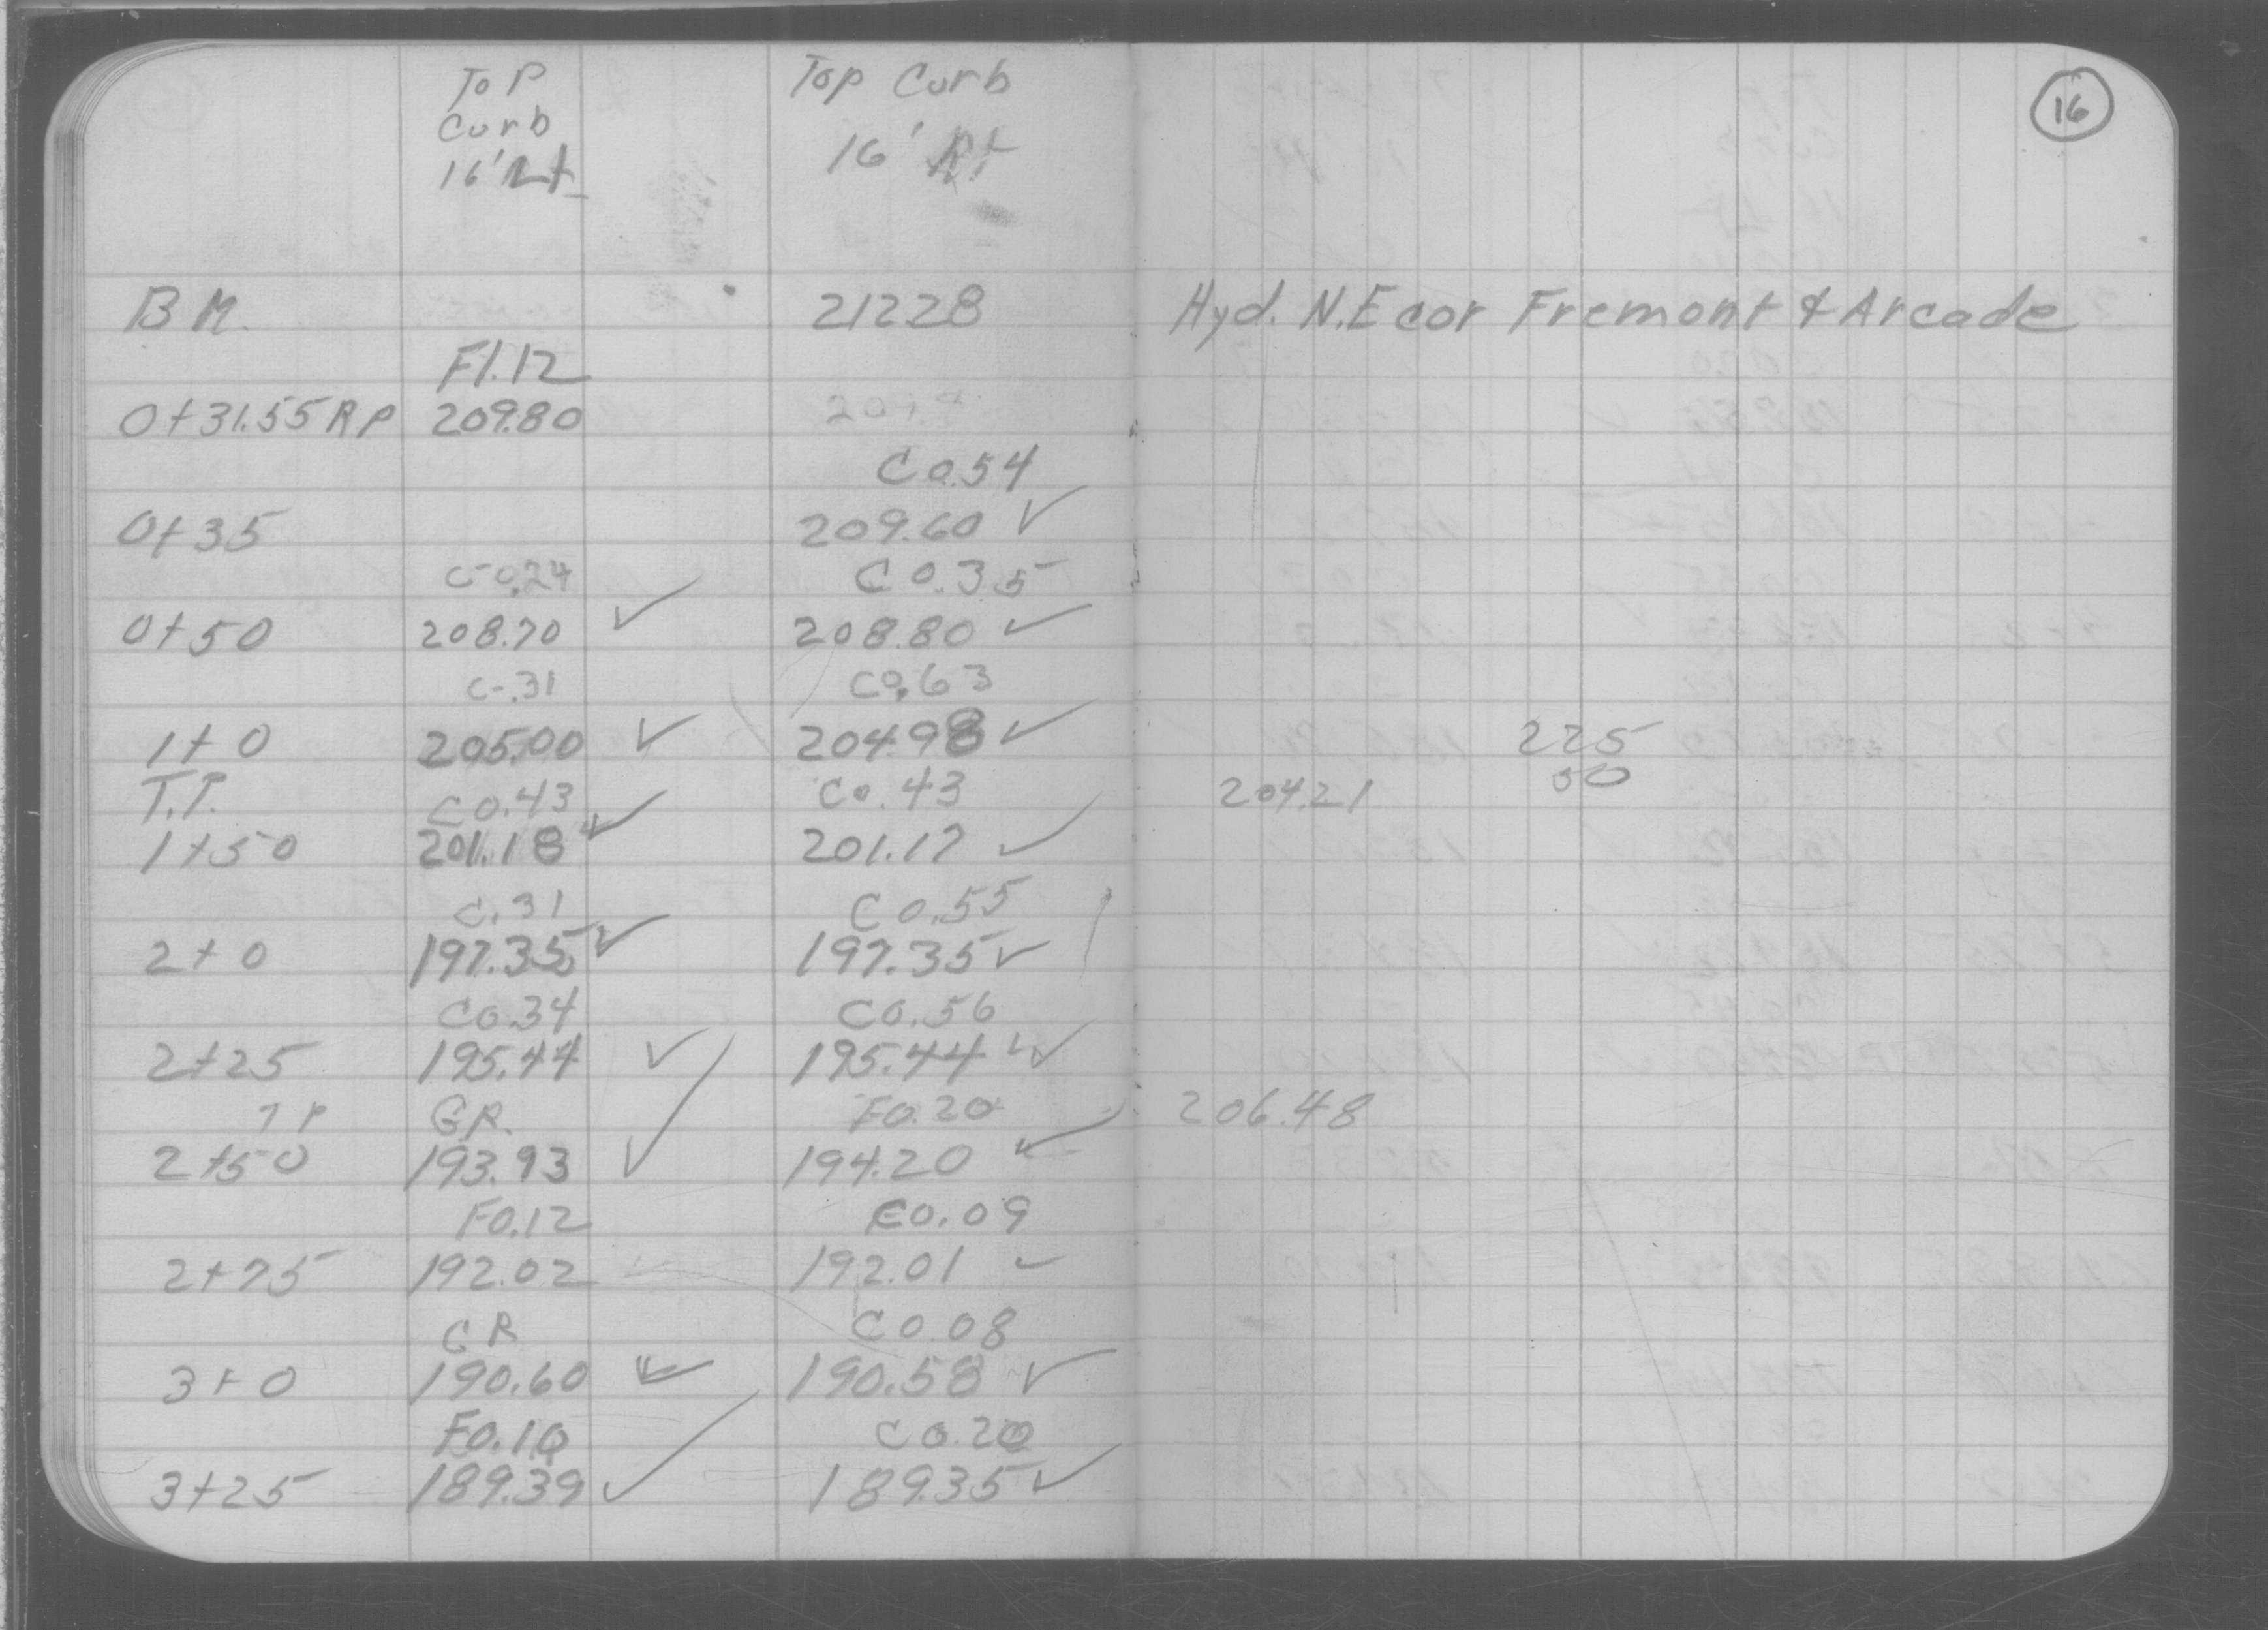 16
Top Top Curb
Curb 16' Rt
16' Lt
B M. 21228 Hyd. N.E cor Fremont & Arcade
F1.12
0+31.55 RP 209.80
C0.54
0+35 209.60 ✓
C-0.24 C0.35
0+50 208.70 ✓ 208.80 ✓
C-.31 C0.63
1+0 205.00 ✓ 204.98 ✓ 225
T.P. C0.43 C0.43 204.21 50
1+50 201.18 ✓ 201.17 ✓
C.31 C0.55
2+0 197.35 ✓ 197.35 ✓
C0.34 C0.56
2+25 195.44 ✓ 195.44 ✓
TP GR. F0.20 206.48
2+50 193.93 ✓ 194.20 ✓
F0.12 C0.09
2+75 192.02 192.01 ✓
GR C0.08
3+0 190.60 ✓ 190.58 ✓
F0.10 C0.20
3+25 189.39 ✓ 189.35 ✓